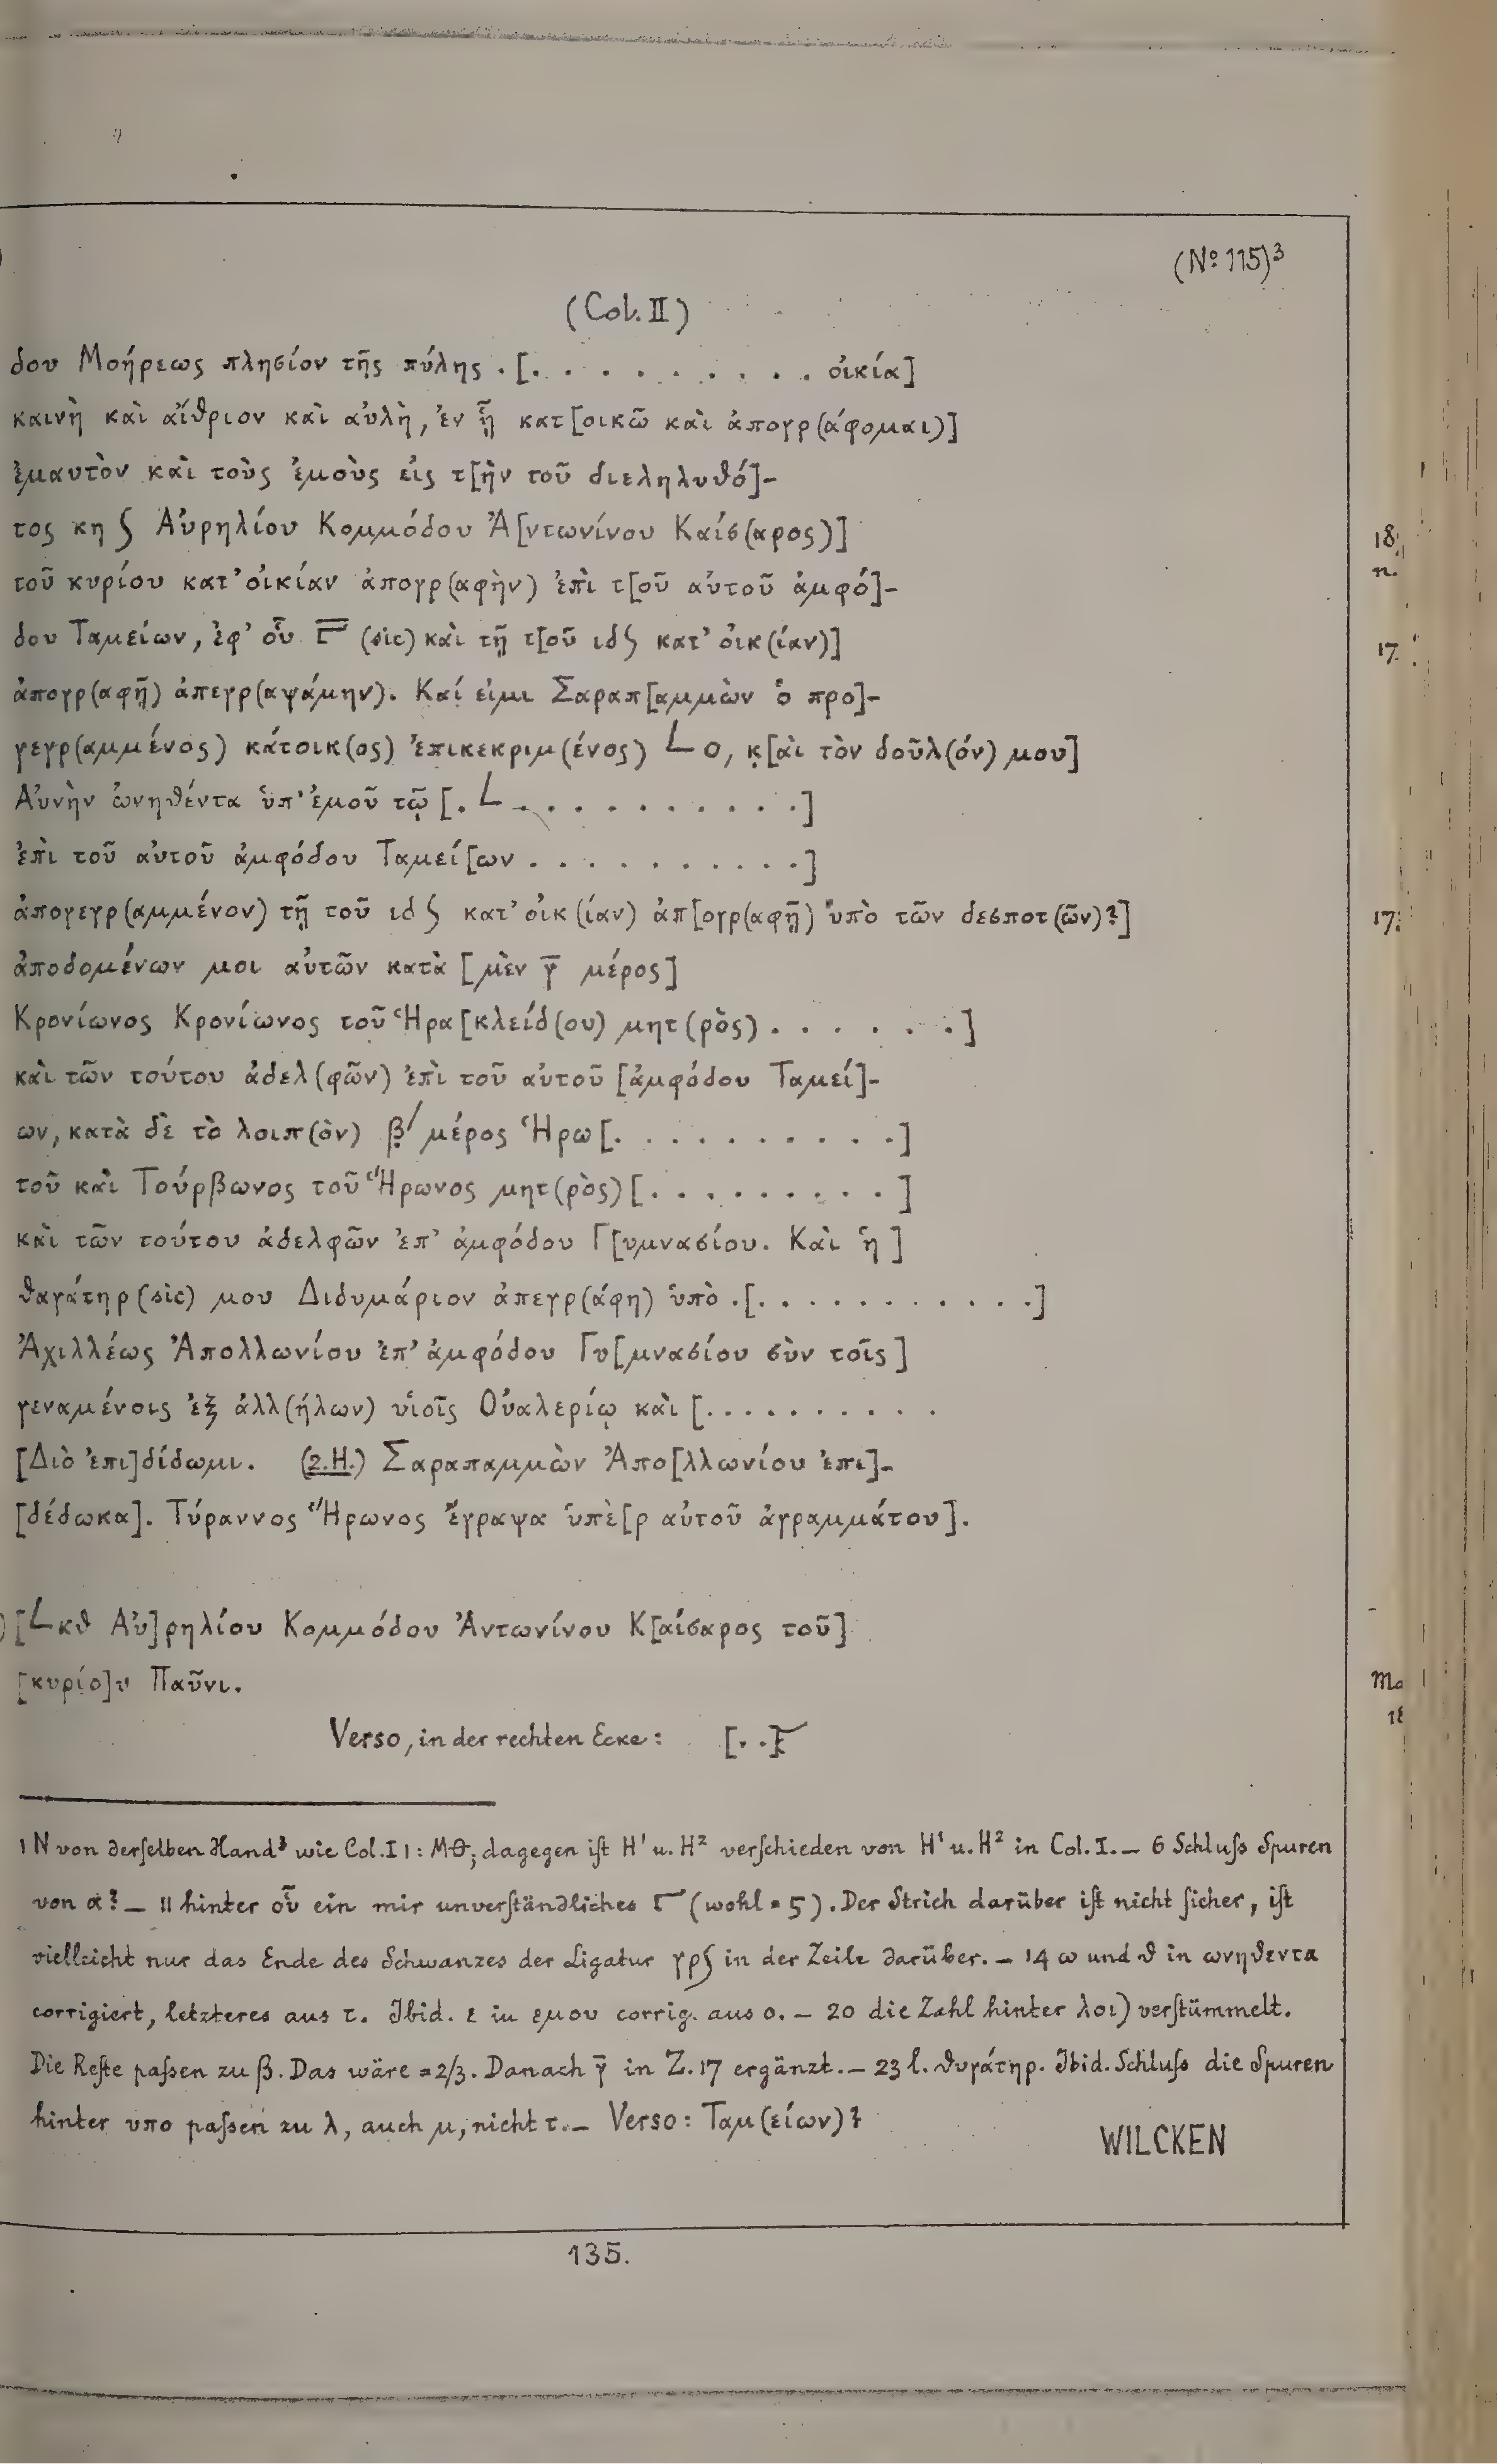 (Nº 115)³
(Col. II)
δου Μοήρεως πλησίον τῆς πύλης . [. . . . . . . . . . οἰκία]
καινὴ καὶ αἴθριον καὶ αὐλὴ, ἐν ᾗ κατ[οικῶ καὶ ἀπογρ(άφομαι)]
ἐμαυτὸν καὶ τοὺς ἐμοὺς εἰς τ[ὴν τοῦ διεληλυθό]-
τος κη ʃ Αὐρηλίου Κομμόδου Ἀ[ντωνίνου Καίσ(αρος)]
τοῦ κυρίου κατ' οἰκίαν ἀπογρ(αφὴν) ἐπὶ τ[οῦ αὐτοῦ ἀμφό]-
δου Ταμείων, ἐφ' οὗ Γ̅ (sic) καὶ τῇ τ[οῦ ιδʃ κατ' οἰκ(ίαν)]
ἀπογρ(αφῇ) ἀπεγρ(αψάμην). Καί εἰμι Σαραπ[αμμὼν ὁ προ]-
γεγρ(αμμένος) κάτοικ(ος) ἐπικεκριμ(ένος) L ο, κ̣[αὶ τὸν δοῦλ(όν) μου]
Αὐνὴν ὠνηθέντα ὑπ' ἐμοῦ τῷ [. L . . . . . . . . . . .]
ἐπὶ τοῦ αὐτοῦ ἀμφόδου Ταμεί[ων . . . . . . . . . . .]
ἀπογεγρ(αμμένον) τῇ τοῦ ιδ ʃ κατ' οἰκ(ίαν) ἀπ[ογρ(αφῇ) ὑπὸ τῶν δεσποτ(ῶν)?]
ἀποδομένων μοι αὐτῶν κατὰ [μὲν γ̅ μέρος]
Κρονίωνος Κρονίωνος τοῦ Ἡρα[κλείδ(ου) μητ(ρὸς) . . . . . . .]
καὶ τῶν τούτου ἀδελ(φῶν) ἐπὶ τοῦ αὐτοῦ [ἀμφόδου Ταμεί]-
ων, κατὰ δὲ τὸ λοιπ(ὸν) β̣' μέρος Ἡρω[. . . . . . . . . . .]
τοῦ καὶ Τούρβωνος τοῦ Ἥρωνος μητ(ρὸς) [. . . . . . . . .]
καὶ τῶν τούτου ἀδελφῶν ἐπ' ἀμφόδου Γ[υμνασίου. Καὶ ἡ]
θαγάτηρ (sic) μου Διδυμάριον ἀπεγρ(άφη) ὑπὸ . [. . . . . . . . . . .]
Ἀχιλλέως Ἀπολλωνίου ἐπ' ἀμφόδου Γυ[μνασίου σὺν τοῖς]
γεναμένοις ἐξ ἀλλ(ήλων) υἱοῖς Οὐαλερίῳ καὶ [. . . . . . . . . .
[Διὸ ἐπι]δίδωμι. (2.H.) Σαραπαμμὼν Ἀπο[λλωνίου ἐπι]-
[δέδωκα]. Τύραννος Ἥρωνος ἔγραψα ὑπὲ[ρ αὐτοῦ ἀγραμμάτου].
[L κθ Αὐ]ρηλίου Κομμόδου Ἀντωνίνου Κ[αίσαρος τοῦ]
[κυρίο]υ Παῦνι.
Verso, in der rechten Ecke:
1 N von derſelben Hand³ wie Col. I 1: ΜΘ; dagegen iſt H¹ u. H² verſchieden von H¹ u. H² in Col. I. — 6 Schluſs Spuren
von α? — 11 hinter οὗ ein mir unverſtändliches Γ (wohl = 5). Der Strich darüber iſt nicht ſicher, iſt
vielleicht nur das Ende des Schwanzes der Ligatur γρʃ in der Zeile darüber. — 14 ω und θ in ωνηθεντα
corrigiert, letzteres aus τ. Ibid. ε in εμου corrig. aus ο. — 20 die Zahl hinter λοι) verſtümmelt.
Die Reſte paſsen zu β. Das wäre = 2/3. Danach γ̅ in Z. 17 ergänzt. — 23 l. θυγάτηρ. Ibid. Schluſs die Spuren
hinter υπο paſsen zu λ, auch μ, nicht τ. — Verso: Ταμ(είων)?
WILCKEN
135.